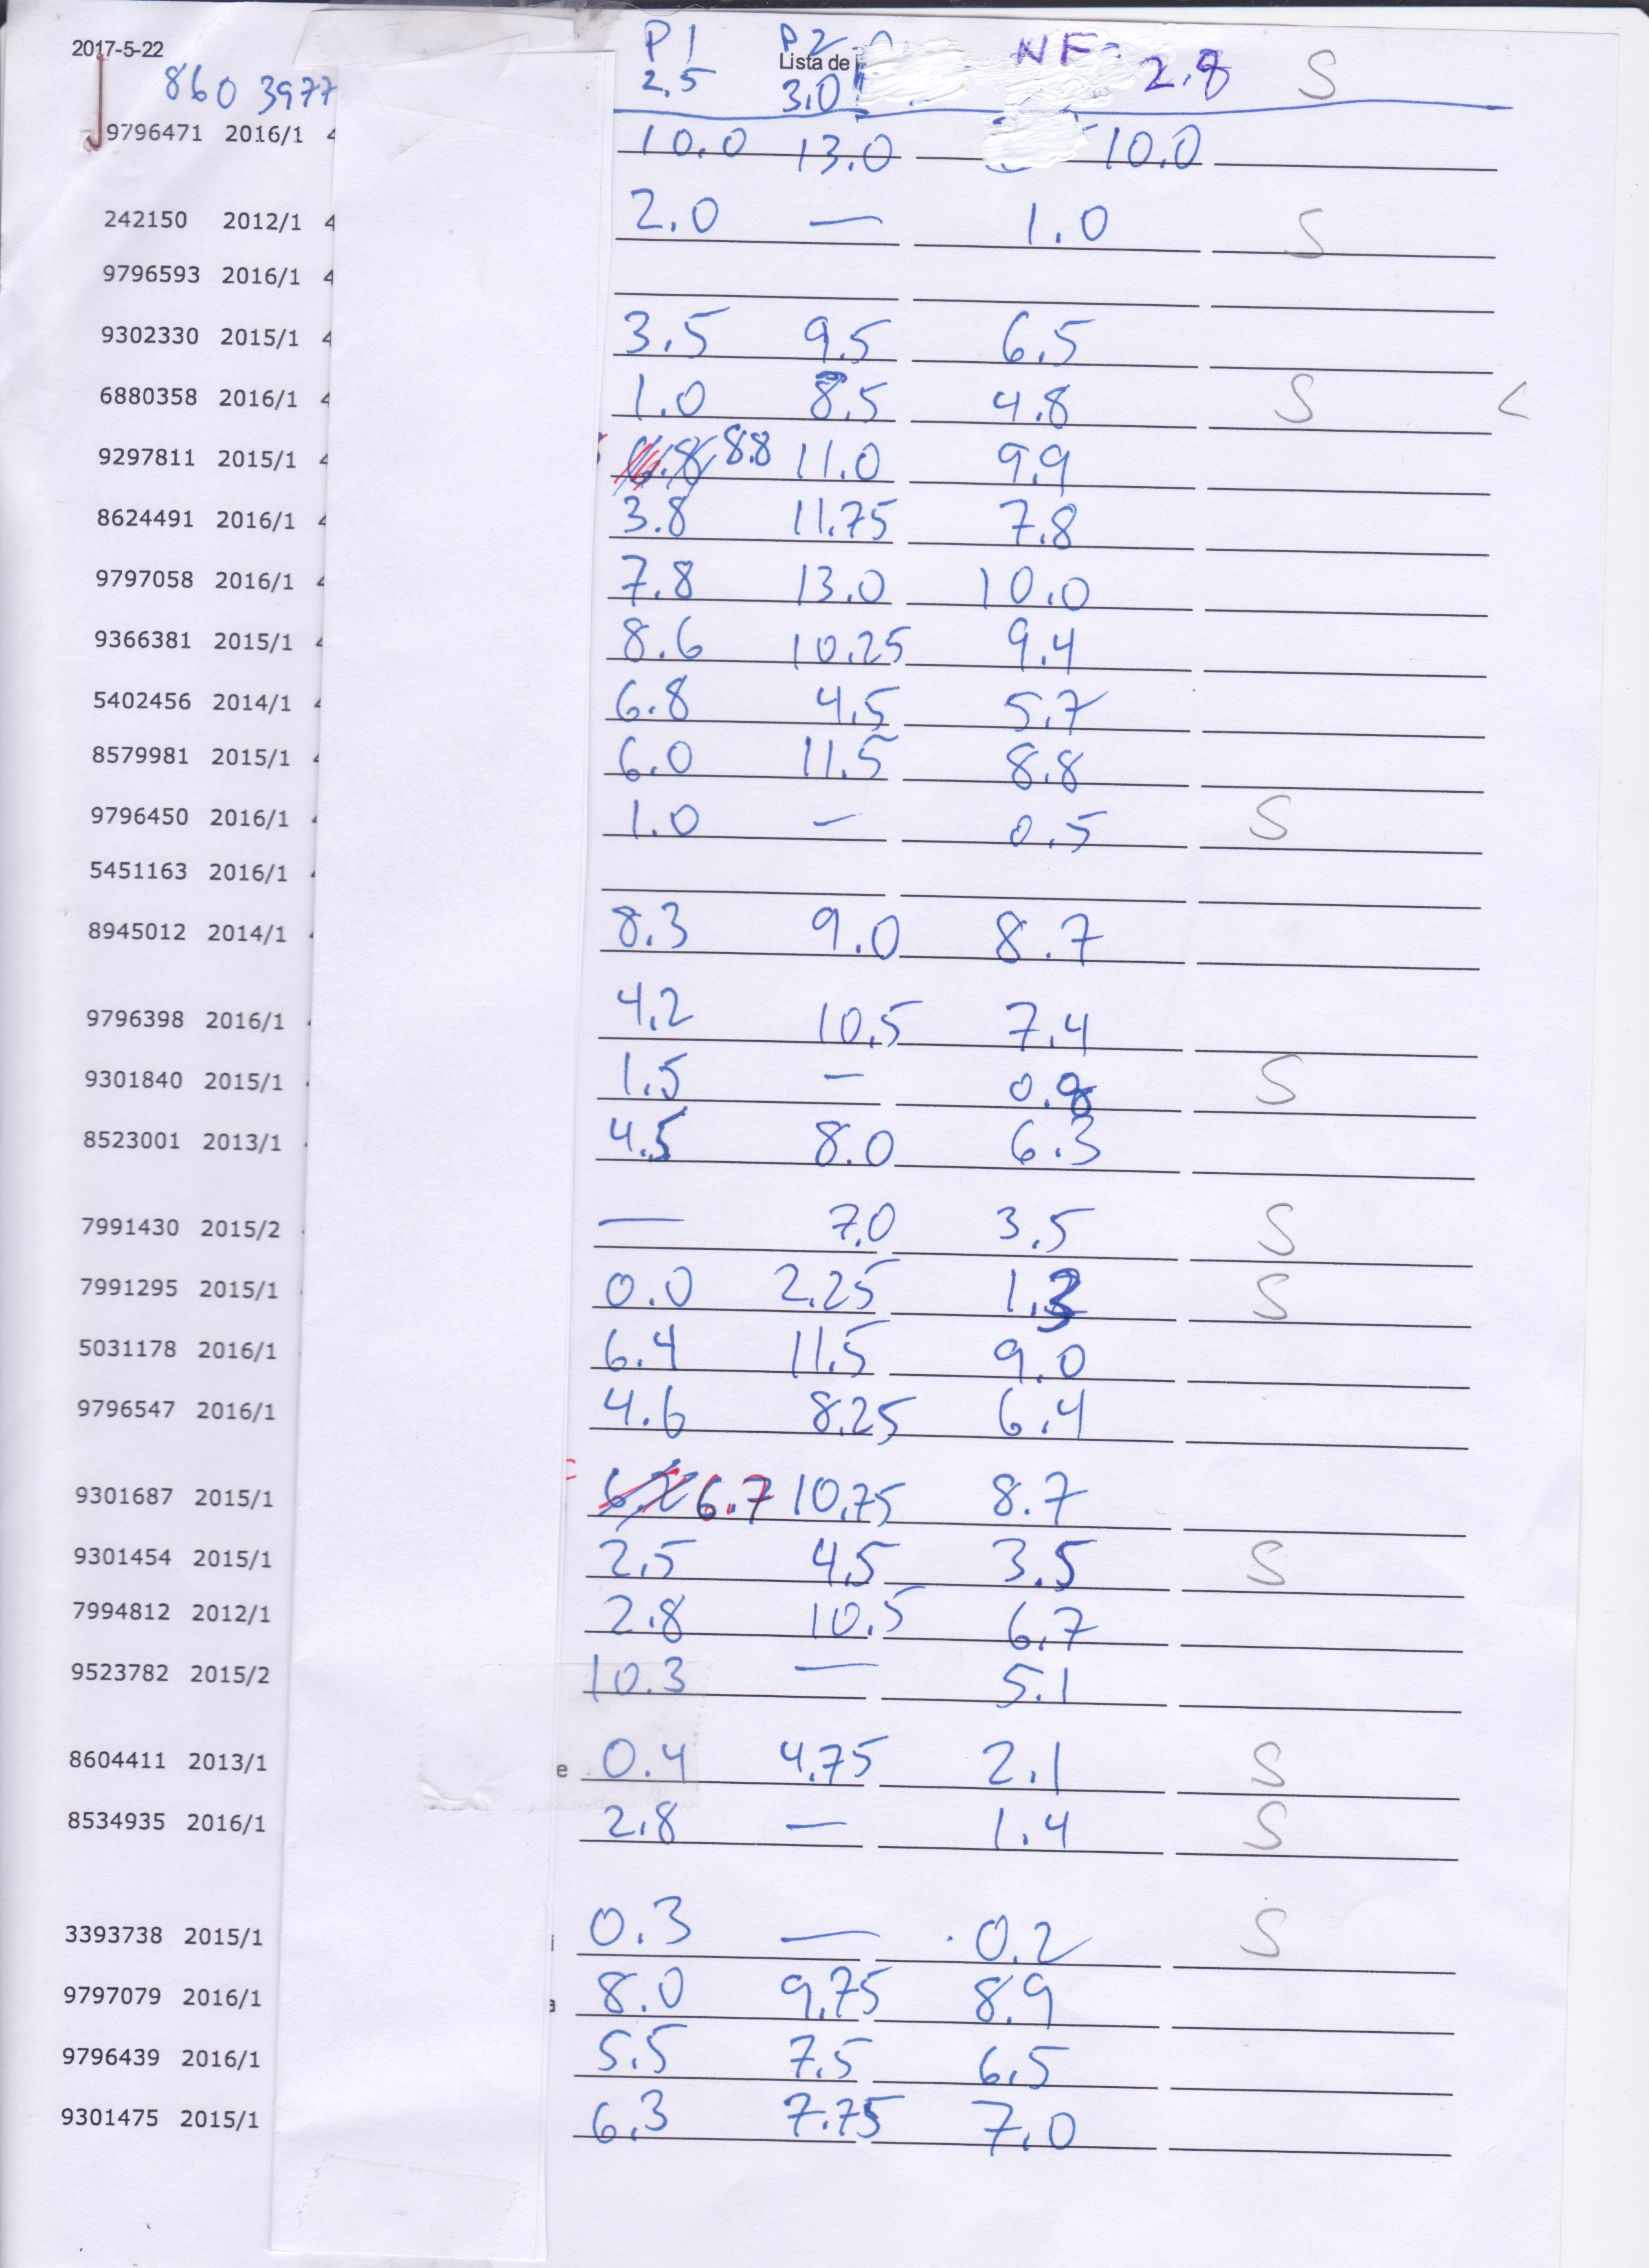 2017-5-22 P1 P2 NF
Lista de
860 3977 2.5 3.0 2.8 S
9796471 2016/1 10.0 13.0 10.0
242150 2012/1 2.0 — 1.0 S
9796593 2016/1
9302330 2015/1 3.5 9.5 6.5
6880358 2016/1 1.0 8.5 4.8 S <
9297811 2015/1 8.8 11.0 9.9
8624491 2016/1 3.8 11.75 7.8
9797058 2016/1 7.8 13.0 10.0
9366381 2015/1 8.6 10.25 9.4
5402456 2014/1 6.8 4.5 5.7
8579981 2015/1 6.0 11.5 8.8
9796450 2016/1 1.0 — 0.5 S
5451163 2016/1
8945012 2014/1 8.3 9.0 8.7
9796398 2016/1 4.2 10.5 7.4
9301840 2015/1 1.5 — 0.8 S
8523001 2013/1 4.5 8.0 6.3
7991430 2015/2 — 7.0 3.5 S
7991295 2015/1 0.0 2.25 1.3 S
5031178 2016/1 6.4 11.5 9.0
9796547 2016/1 4.6 8.25 6.4
9301687 2015/1 6.7 10.75 8.7
9301454 2015/1 2.5 4.5 3.5 S
7994812 2012/1 2.8 10.5 6.7
9523782 2015/2 10.3 — 5.1
8604411 2013/1 e 0.4 4.75 2.1 S
8534935 2016/1 2.8 — 1.4 S
3393738 2015/1 0.3 — 0.2 S
9797079 2016/1 a 8.0 9.75 8.9
9796439 2016/1 5.5 7.5 6.5
9301475 2015/1 6.3 7.75 7.0